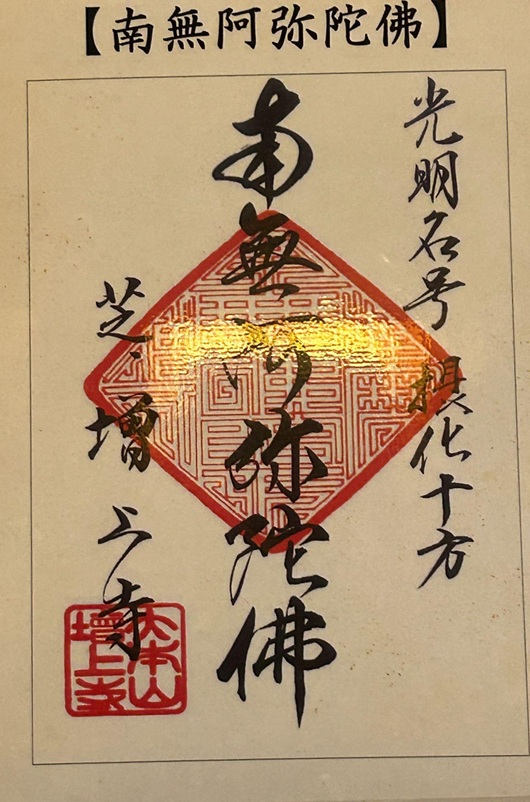 【南無阿弥陀佛】
光明名号 摂化十方
南無阿弥陀佛
芝・増上寺
大本山
増上寺